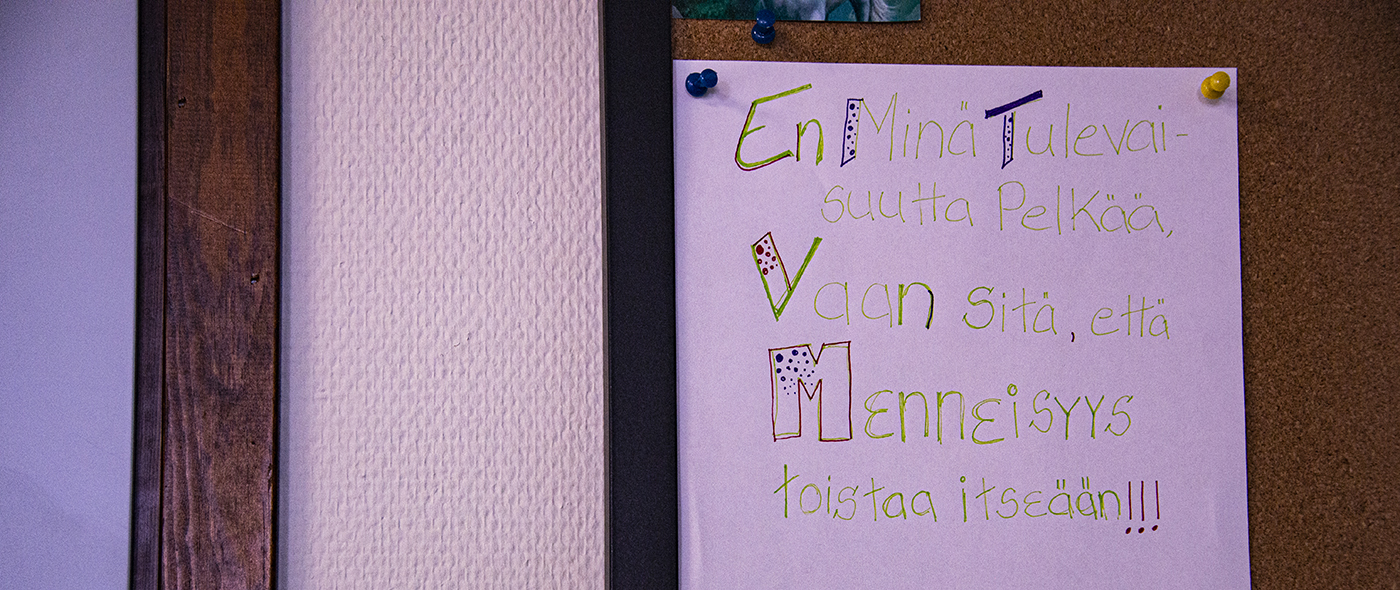 En Minä Tulevai-
suutta Pelkää,
Vaan sitä, että
Menneisyys
toistaa itseään!!!